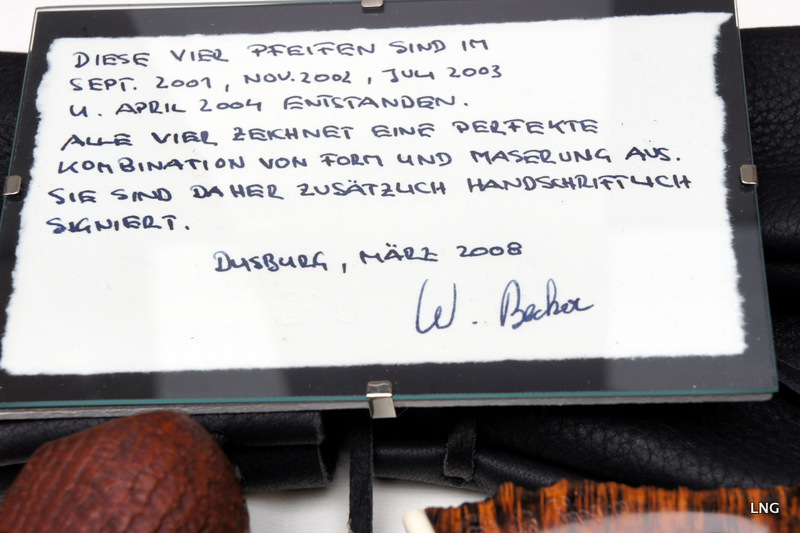 DIESE VIER PFEIFEN SIND IM
SEPT. 2001, NOV. 2002, JULI 2003
U. APRIL 2004 ENTSTANDEN.
ALLE VIER ZEICHNET EINE PERFEKTE
KOMBINATION VON FORM UND MASERUNG AUS.
SIE SIND DAHER ZUSÄTZLICH HANDSCHRIFTLICH
SIGNIERT.
DUISBURG, MÄRZ 2008
W. Becker
LNG